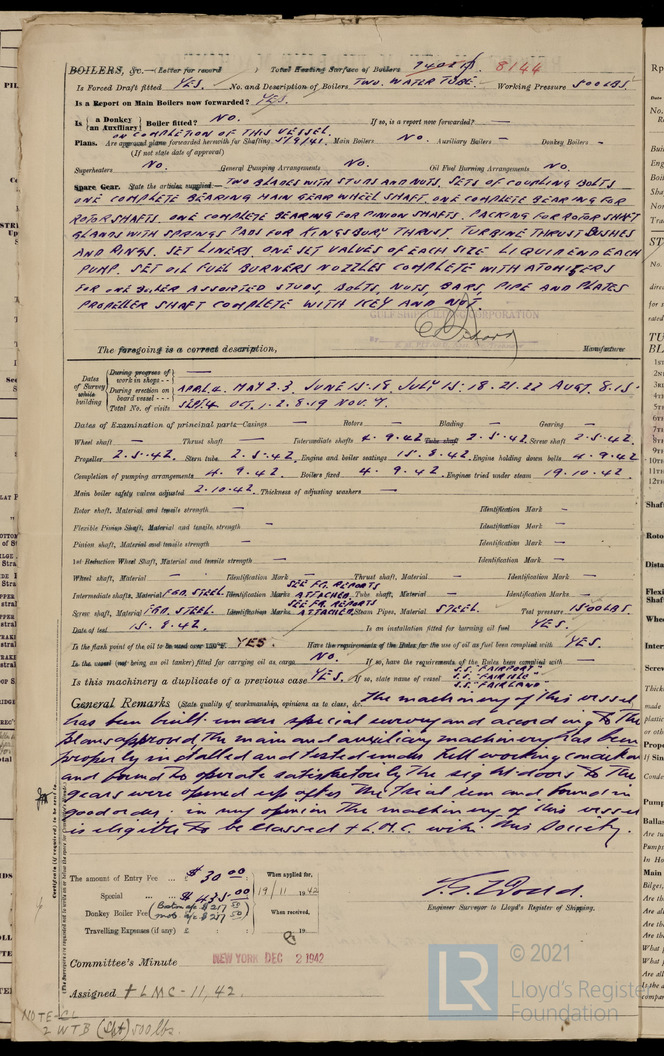 BOILERS, &c.—(Letter for record ) Total Heating Surface of Boilers 8144
Is Forced Draft fitted YES. No. and Description of Boilers TWO. WATER TUBE. Working Pressure 500 LBS.
Is a Report on Main Boilers now forwarded? YES.
Is {a Donkey / an Auxiliary} Boiler fitted? NO. If so, is a report now forwarded? —
ON COMPLETION OF THIS VESSEL.
Plans. Are approved plans forwarded herewith for Shafting 5/9/41. Main Boilers NO. Auxiliary Boilers — Donkey Boilers —
(If not state date of approval)
Superheaters NO. General Pumping Arrangements NO. Oil Fuel Burning Arrangements NO.
Spare Gear. State the articles supplied— TWO BLADES WITH STUDS AND NUTS. SETS OF COUPLING BOLTS
ONE COMPLETE BEARING MAIN GEAR WHEEL SHAFT. ONE COMPLETE BEARING FOR
ROTOR SHAFTS. ONE COMPLETE BEARING FOR PINION SHAFTS. PACKING FOR ROTOR SHAFT
GLANDS WITH SPRINGS PADS FOR KINGSBURY THRUST TURBINE THRUST BUSHES
AND RINGS. SET LINERS. ONE SET VALVES OF EACH SIZE LIQUID END EACH
PUMP. SET OIL FUEL BURNERS NOZZLES COMPLETE WITH ATOMIZERS
FOR ONE BOILER ASSORTED STUDS, BOLTS, NUTS, BARS, PIPE AND PLATES
PROPELLER SHAFT COMPLETE WITH KEY AND NUT.
GULF SHIPBUILDING CORPORATION
The foregoing is a correct description, Manufacturer
Dates of Survey while building
During progress of work in shops - - —
During erection on board vessel - - - APRIL 4. MAY 2.3. JUNE 15.18. JULY 15.18.21.22 AUGT. 8.15.
Total No. of visits SEPT. 4. OCT. 1.2.8.19 NOV. 7.
Dates of Examination of principal parts—Casings — Rotors — Blading — Gearing —
Wheel shaft — Thrust shaft — Intermediate shafts 4.9.42 Tube shaft 2.5.42. Screw shaft 2.5.42.
Propeller 2.5.42. Stern tube 2.5.42. Engine and boiler seatings 15.8.42. Engine holding down bolts 4.9.42
Completion of pumping arrangements 4.9.42. Boilers fixed 4.9.42. Engines tried under steam 19.10.42.
Main boiler safety valves adjusted 2.10.42. Thickness of adjusting washers —
Rotor shaft, Material and tensile strength — Identification Mark —
Flexible Pinion Shaft, Material and tensile strength — Identification Mark —
Pinion shaft, Material and tensile strength — Identification Mark —
1st Reduction Wheel Shaft, Material and tensile strength — Identification Mark —
Wheel shaft, Material — Identification Mark — Thrust shaft, Material — Identification Mark —
SEE FG. REPORTS
Intermediate shafts, Material FGD. STEEL. Identification Marks ATTACHED. Tube shaft, Material — Identification Marks —
SEE FG. REPORTS
Screw shaft, Material FGD. STEEL. Identification Marks ATTACHED. Steam Pipes, Material STEEL. Test pressure 1500 LBS
Date of test 15.8.42. Is an installation fitted for burning oil fuel YES.
Is the flash point of the oil to be used over 150°F. YES. Have the requirements of the Rules for the use of oil as fuel been complied with YES.
Is the vessel (not being an oil tanker) fitted for carrying oil as cargo NO. If so, have the requirements of the Rules been complied with —
Is this machinery a duplicate of a previous case YES. If so, state name of vessel S.S. "FAIRPORT"
S.S. "FAIRISLE"
S.S. "FAIRLAND"
General Remarks (State quality of workmanship, opinions as to class, &c. The machinery of this vessel
has been built under special survey and according to the
plans approved, the main and auxiliary machinery has been
properly installed and tested under full working condition
and found to operate satisfactorily the sight doors to the
gears were opened up after the trial run and found in
good order. in my opinion the machinery of this vessel
is eligible to be classed + L.M.C. with this Society.
The amount of Entry Fee ... $ 30 00 When applied for,
Special ... $ 435.00 19/11 1942
Donkey Boiler Fee (Boston a/c $ 217 50 When received,
mob a/c $ 217 50)
Travelling Expenses (if any) £ : : 19
Engineer Surveyor to Lloyd's Register of Shipping.
Committee's Minute NEW YORK DEC 2 1942
Assigned + LMC - 11,42.
NOTE-CL
2 WTB (Spt) 500 lbs.
LR
© 2021
Lloyd's Register
Foundation